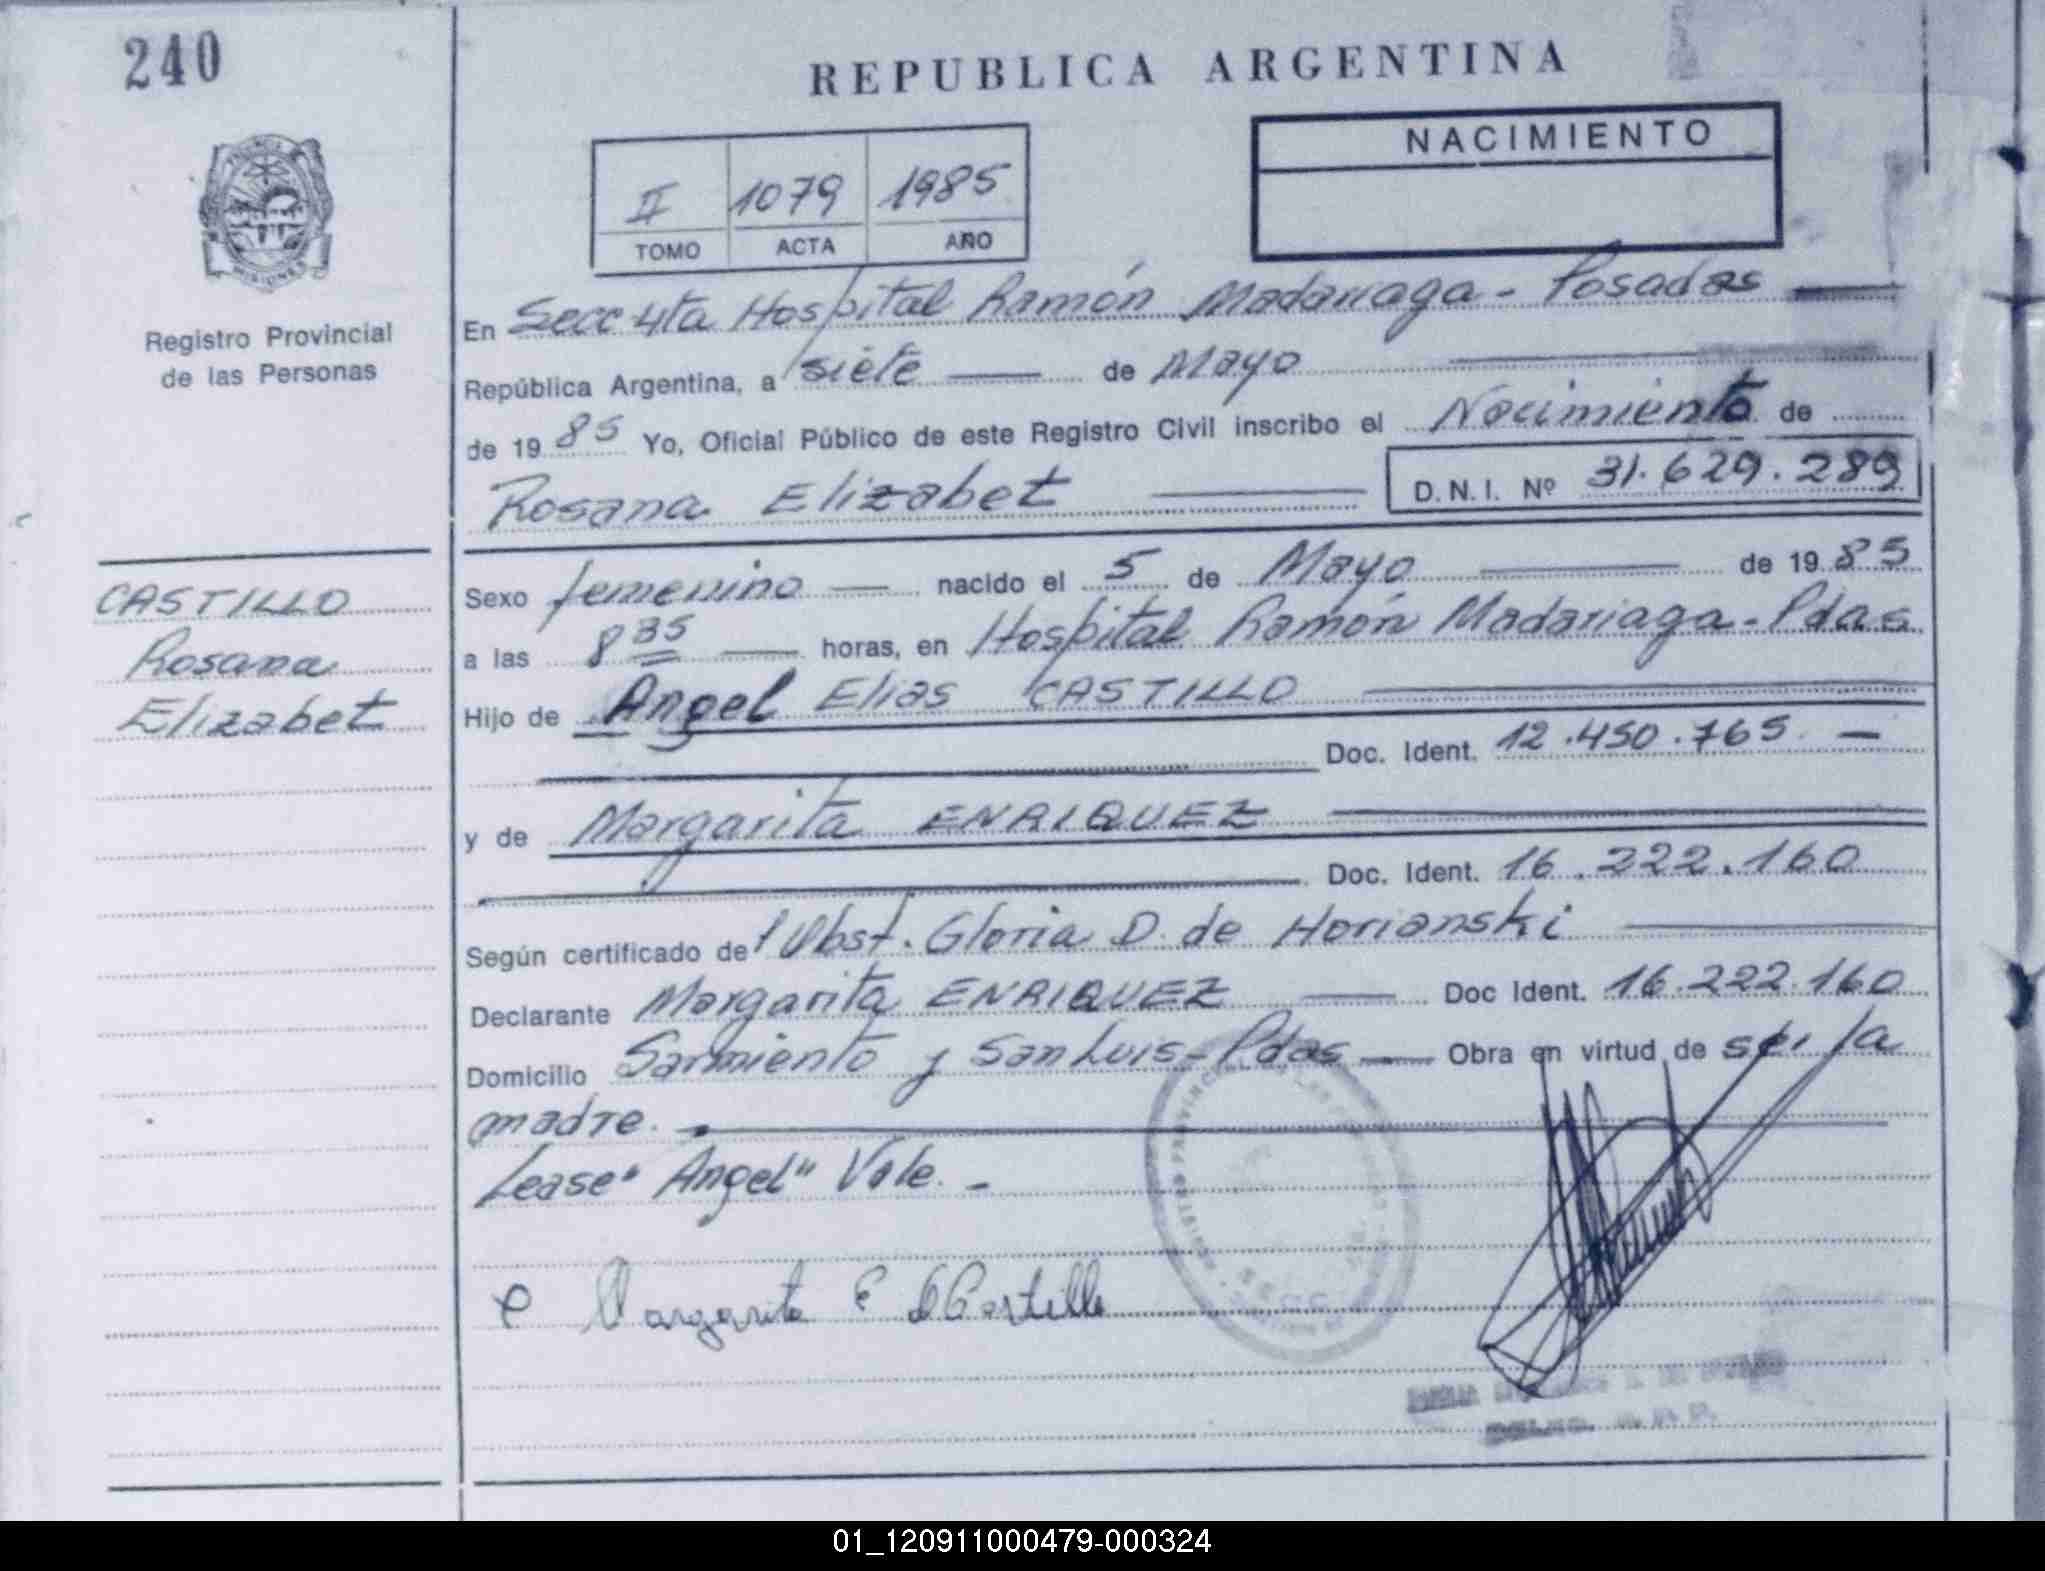 240
REPUBLICA ARGENTINA
II 1079 1985
TOMO ACTA AÑO
NACIMIENTO
MISIONES
Registro Provincial
de las Personas
En Secc 4ta Hospital Ramón Madariaga - Posadas
República Argentina, a siete de Mayo
de 19 85 Yo, Oficial Público de este Registro Civil inscribo el Nacimiento de
Rosana Elizabet D.N.I. Nº 31.629.289
CASTILLO
Rosana
Elizabet
Sexo femenino nacido el 5 de Mayo de 19 85
a las 8 35 horas, en Hospital Ramón Madariaga - Pdas
Hijo de Angel Elias CASTILLO
Doc. Ident. 12.450.765 -
y de Margarita ENRIQUEZ
Doc. Ident. 16.222.160
Según certificado de Obst. Gloria D. de Horianski
Declarante Margarita ENRIQUEZ Doc Ident. 16.222.160
Domicilio Sarmiento y San Luis - Pdas Obra en virtud de ser la
madre.
Lease "Angel" Vale. -
Margarita E de Castillo
01_120911000479-000324